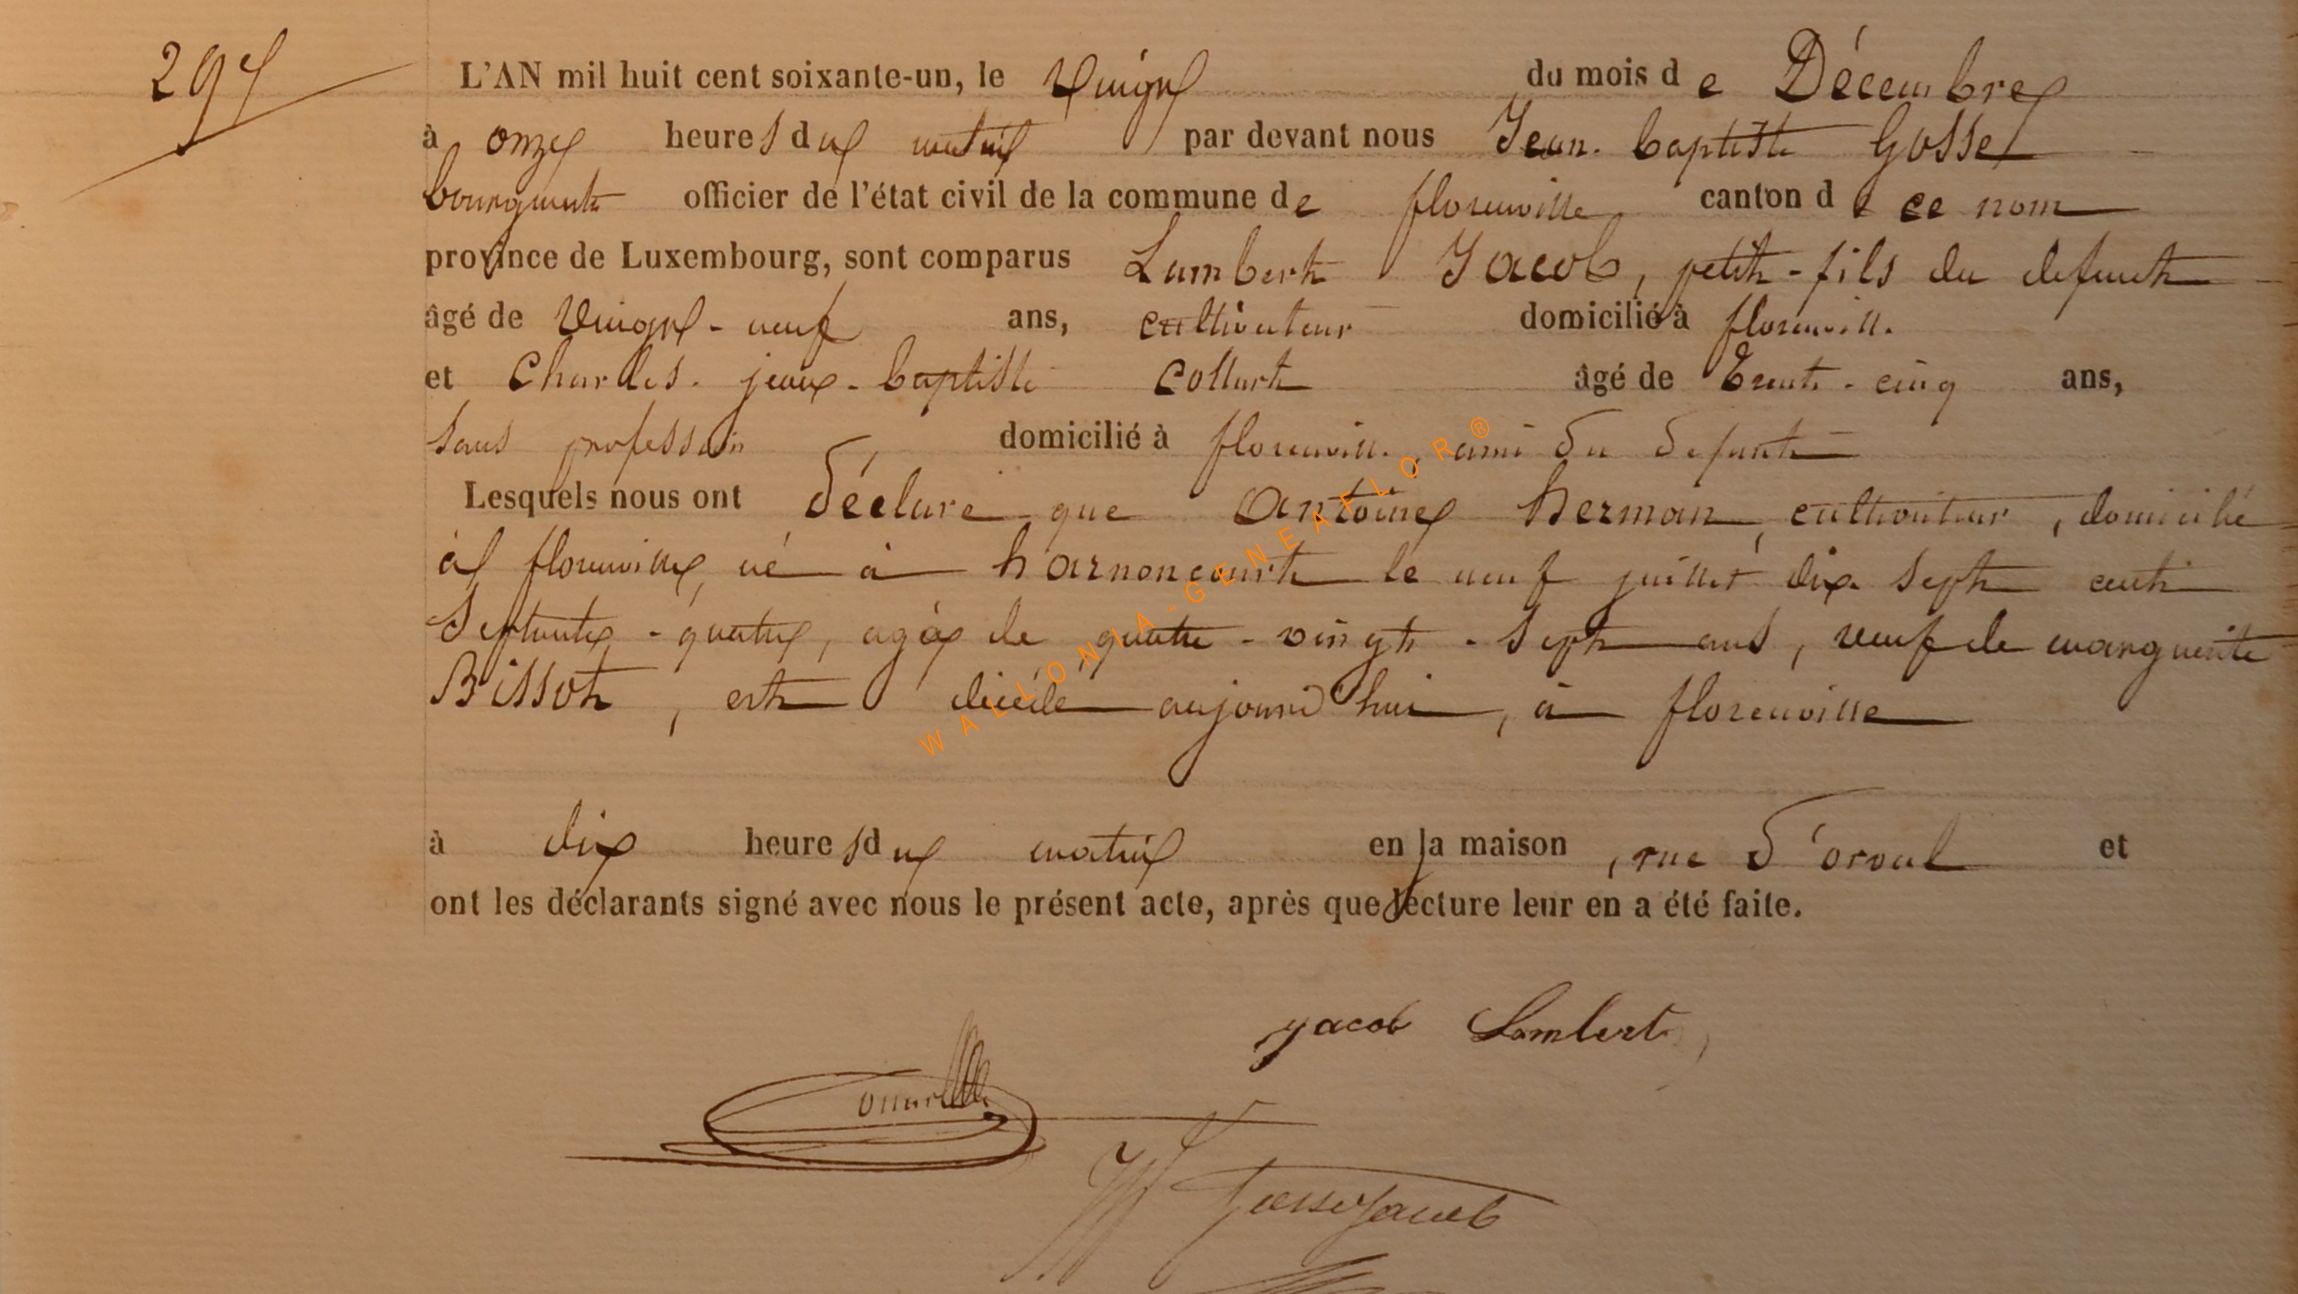 297
L'AN mil huit cent soixante-un, le Vingt du mois de Décembre
à onze heures du matin par devant nous Jean-baptiste Gosse
bourgmestre officier de l'état civil de la commune de florenville canton de ce nom
province de Luxembourg, sont comparus Lambert Jacob, petit-fils du defunt
âgé de Vingt-neuf ans, cultivateur domicilié à florenville
et Charles-jean-baptiste Collart âgé de Trente-cinq ans,
sans profession, domicilié à florenville, ami du defunt
Lesquels nous ont déclaré que Antoine herman, cultivateur, domicilié
à florenville, né à harnoncourt le neuf juillet dix sept cent
septante-quatre, agé de quatre-vingt-sept ans, veuf de marguerite
Bissot, est décédé aujourd'hui, à florenville
à dix heures du matin en sa maison, rue d'orval et
ont les déclarants signé avec nous le présent acte, après que lecture leur en a été faite.
Jacob Lambert
WALLONIA-GENEAFLOR®